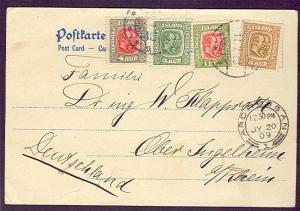 Postkarte
Post Card
ISLAND ISLAND ISLAND ISLAND
4 AUR
Familie
Dr. ing W. Klapproth
Ober Ingelheim
a/Rhein
Deutschland
12.30 PM
JY 20
09